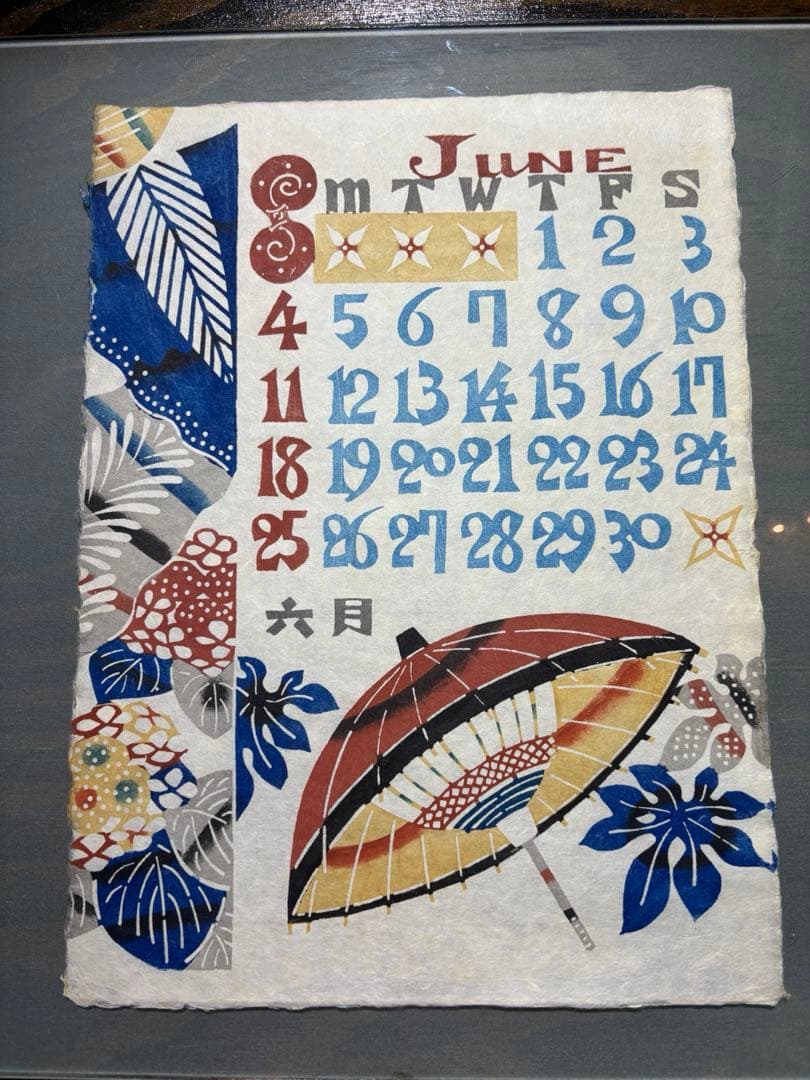 JUNE
S M T W T F S
1 2 3
4 5 6 7 8 9 10
11 12 13 14 15 16 17
18 19 20 21 22 23 24
25 26 27 28 29 30
六月